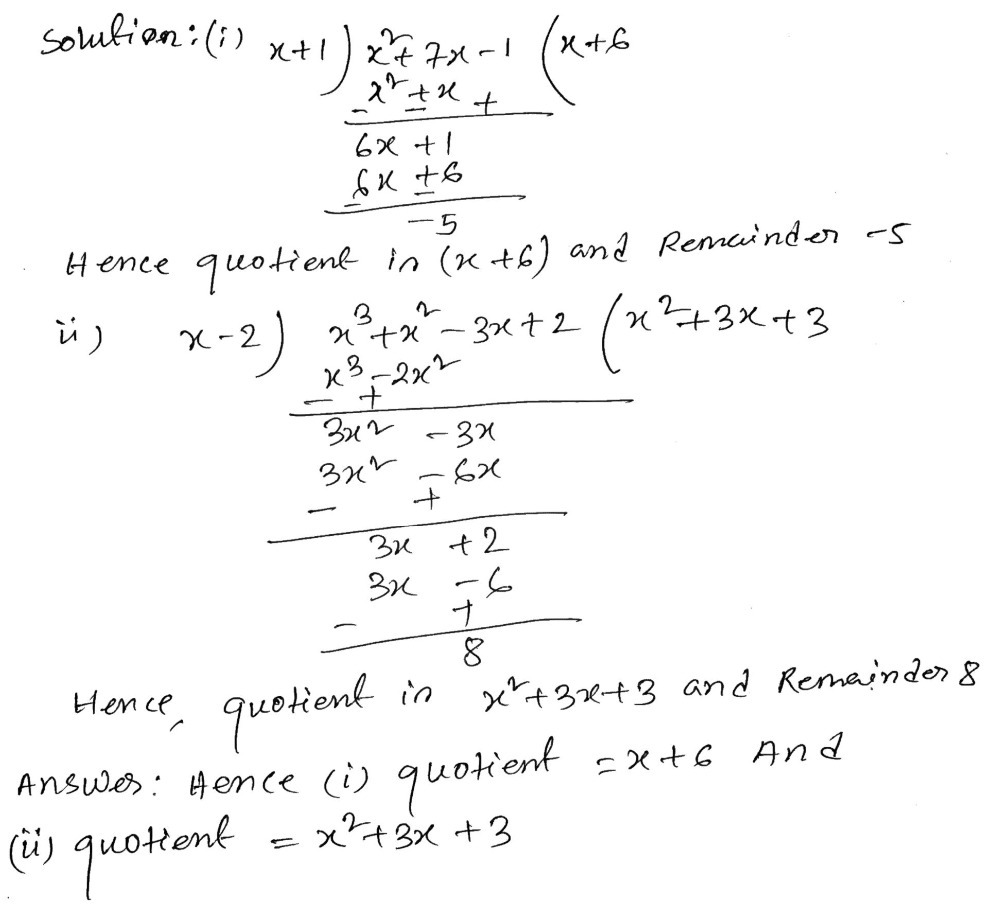 Solution: (i) x+1 ) x²+7x-1 ( x+6
x²+x
- - +
6x +1
6x +6
- -
-5
Hence quotient in (x+6) and Remainder -5
ii) x-2 ) x³+x²-3x+2 ( x²+3x+3
x³-2x²
- +
3x² -3x
3x² -6x
- +
3x +2
3x -6
- +
8
Hence, quotient in x²+3x+3 and Remainder 8
Answer: Hence (i) quotient =x+6 And
(ii) quotient = x²+3x+3